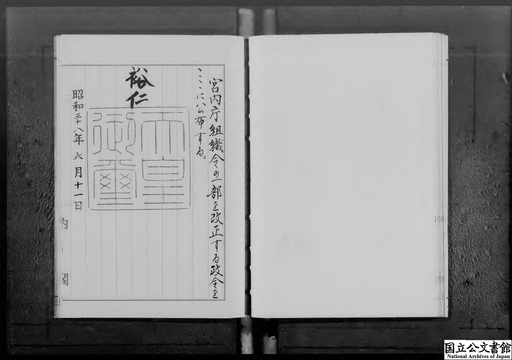 宮内庁組織令の一部を改正する政令を
ここに公布する。
裕仁
天皇
御璽
昭和三十八年六月十一日
内閣
国立公文書館
National Archives of Japan